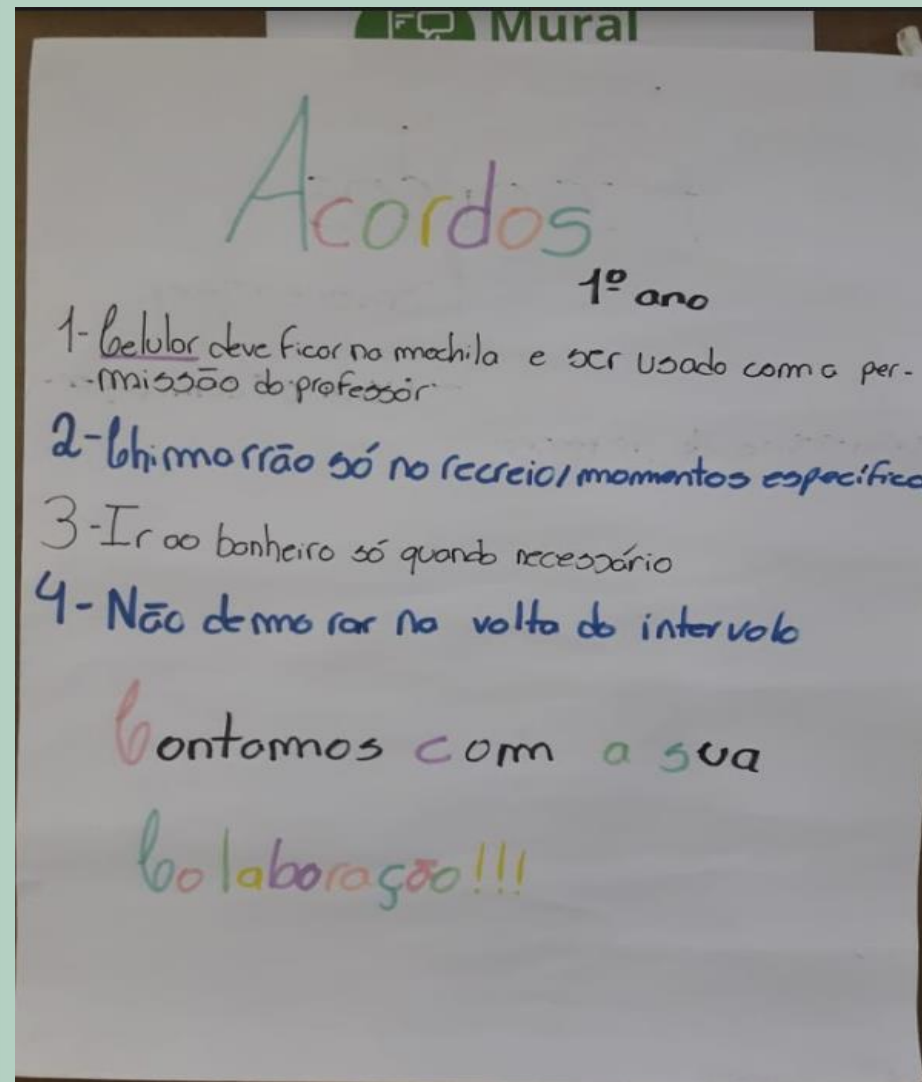 Mural
Acordos
1º ano
1- Celular deve ficar na mochila e ser usado com a per-
-missão do professor
2- Chimarrão só no recreio/momentos específico
3- Ir ao banheiro só quando necessário
4- Não demorar na volta do intervalo
Contamos com a sua
Colaboração!!!